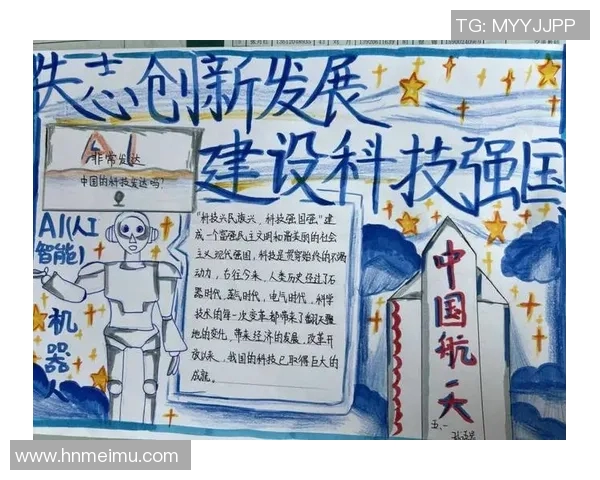 TG: MYYJJPP
失志创新发展
建设科技强国
AI
非常发达
中国的科技发达吗?
AI(人工
智能)
机
器
人
"科技兴民族兴,科技强国强"建
成一个富强民主文明和谐美丽的社会
主义现代强国,科技是贯穿始终的不竭
动力,古往今来,人类历史经过了石
器时代,蒸气时代,电气时代,科学
技术的每一次变革都带来了翻天覆
地的变化,带来经济的发展,改革开
放以来,我国的科技已取得巨大的
成就。
中
国
航
天
五.一
www.hnmeimu.com